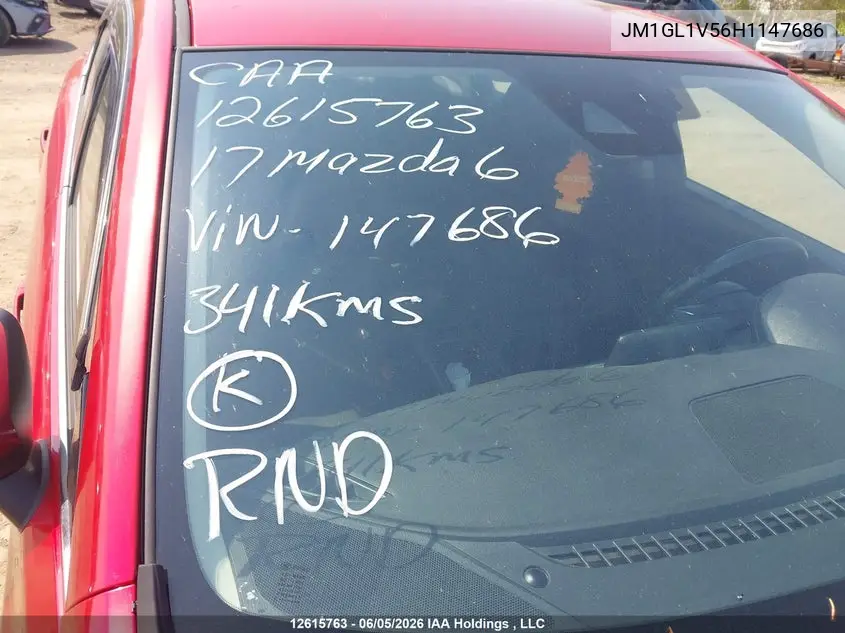 JM1GL1V56H1147686
CAA
12615763
17 Mazda 6
ViN- 147686
341Kms
K
RND
12615763 - 06/05/2026 IAA Holdings , LLC